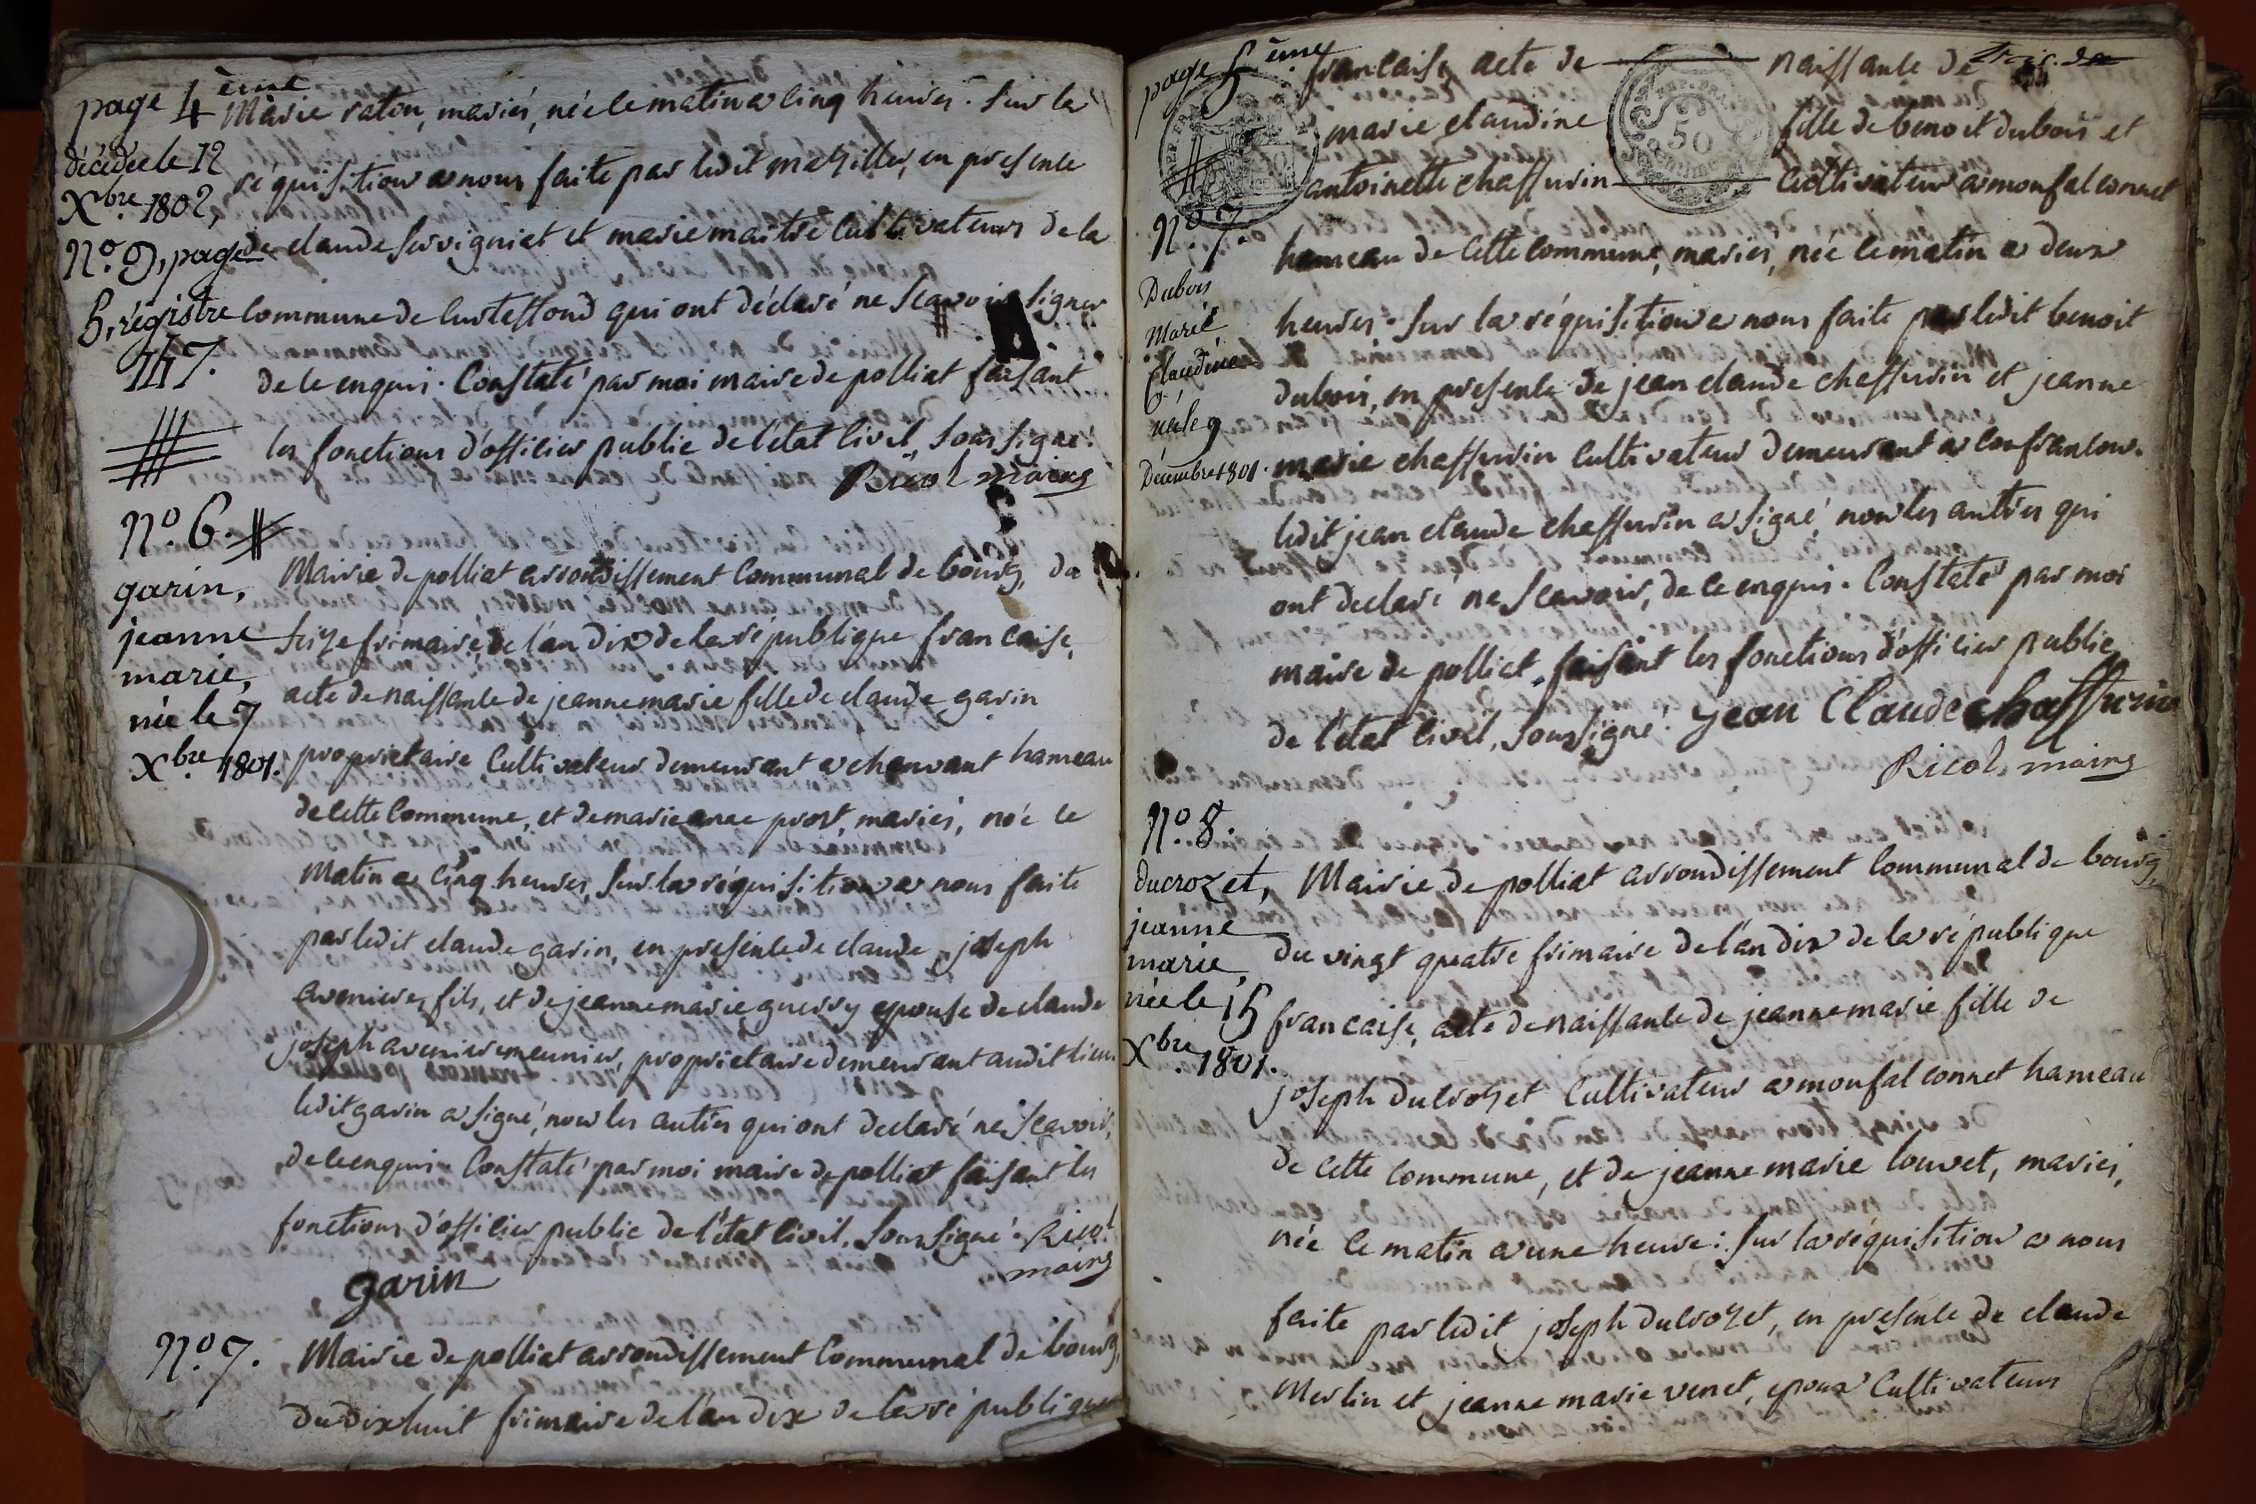 page 4 ème
Marie raton, mariés, née le matin a cinq heures. Sur la
réquisition a nous faite par ledit meziller, en presence
de claude survigniet et marie maitre Cultivateurs de la
Commune de Curtessond qui ont déclaré ne Scavoir signer
de ce enquis. Constaté par moi maire de polliat faisant
les fonctions d'officier public de l'état Civil, Soussigné.
Ricol maire
décédée le 12
Xbre 1802,
No. 9, page
5, régistre
147.
No. 6.
garin,
jeanne
marie,
née le 7
Xbre 1801.
Mairie de polliat arrondissement Communal de bourg, du
seize frimaire, de l'an dix de la république francaise,
acte de naissance de jeanne marie fille de claude garin
proprietaire Cultivateur demeurant a chanvant hameau
de cette Commune, et de marie anne prost, mariés, née ce
Matin a cinq heures, Sur la réquisition a nous faite
par ledit claude garin, en presence de claude joseph
avenier, fils, et de jeanne marie guerry epouse de claude
joseph avenier meunier, proprietaire demeurant audit lieu
ledit garin a signé, non les autres qui ont declaré ne Scavoir,
de ce enquis. Constaté par moi maire de polliat faisant les
fonctions d'officier public de l'état Civil, Soussigné. Ricol
maire
garin
No. 7.
Mairie de polliat arrondissement Communal de bourg,
du dix huit frimaire de l'an dix de la république
page 5 ème
francaise, acte de naissance de
marie claudine fille de benoit dubois et
antoinette chaffurin Cultivateur a monfalconnet
hameau de cette Commune, mariés, née ce matin a deux
heures. Sur la réquisition a nous faite par ledit benoit
dubois, en presence de jean claude chaffurin et jeanne
marie chaffurin Cultivateur demeurant a Confrancon.
ledit jean claude chaffurin a signé, non les autres qui
ont declaré ne Scavoir, de ce enquis. Constaté par moi
maire de polliat, faisant les fonctions d'officier public
de l'état Civil, Soussigné. jean Claude chaffurin
Ricol, maire
50
No. 7.
Dubois
Marie
Claudine
née le 9
Décembre 1801.
No. 8.
ducrozet,
jeanne
marie,
née le 15
Xbre 1801.
Mairie de polliat arrondissement Communal de bourg,
du vingt quatre frimaire de l'an dix de la république
francaise, acte de naissance de jeanne marie fille de
joseph Ducrozet Cultivateur a monfalconnet hameau
de cette Commune, et de jeanne marie louvet, mariés,
née ce matin a une heure: Sur la réquisition a nous
faite par ledit joseph ducrozet, en presence de claude
Merlin et jeanne marie venet, epoux Cultivateurs